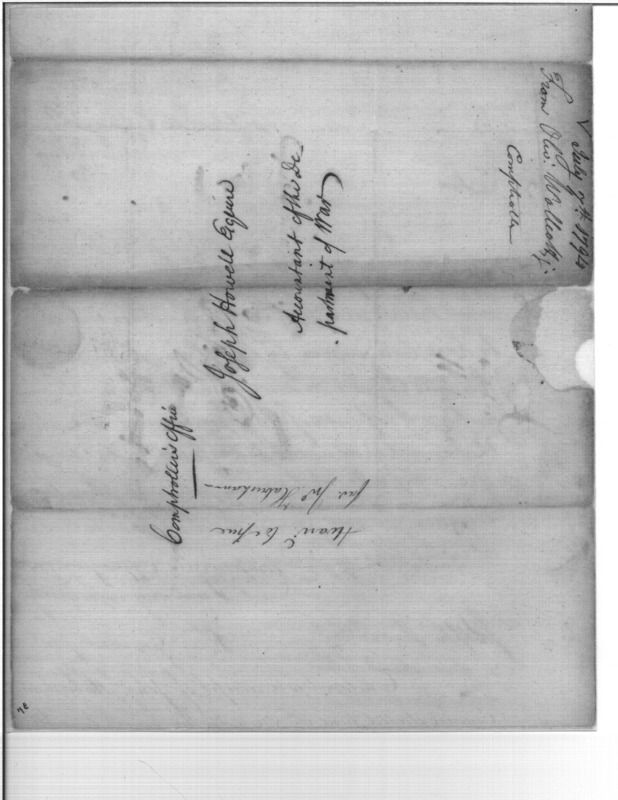 July 9th 1794
From Oliv. Wolcott Jr.
Comptroller
Joseph Howell Esquire
Accountant of the De
partment of War
Comptroller's Office
fav. Jno.